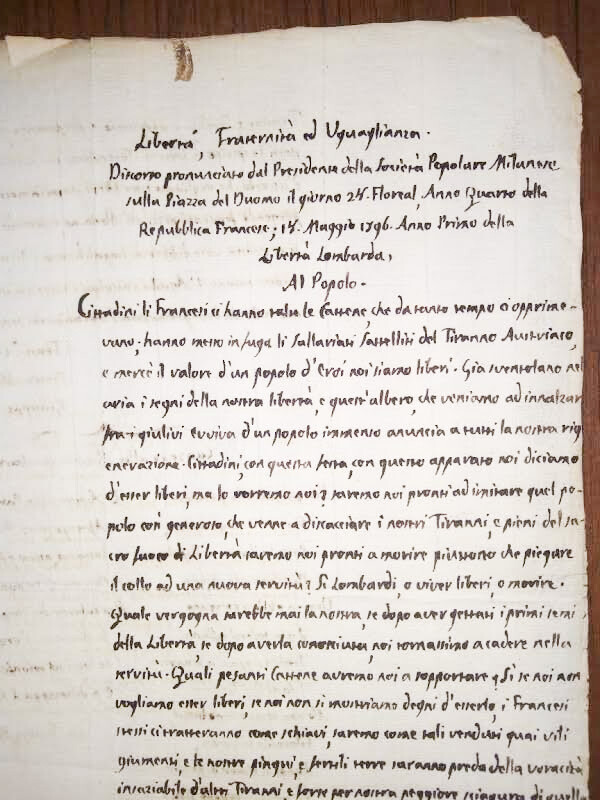 Libertà, Fraternità ed Uguaglianza.
Discorso pronunciato dal Presidente della Società Popolare Milanese
sulla Piazza del Duomo il giorno 24. Floreal, Anno Quarto della
Repubblica Francese; 14. Maggio 1796. Anno Primo della
Libertà Lombarda,
Al Popolo.
Cittadini li Francesi ci hanno tolto le Cattene, che da tanto tempo ci opprime-
vano; hanno messo in fuga li sallariati sattelliti del Tiranno Austriaco,
e mercè il valore d'un popolo d'Eroi noi siamo liberi. Già sventolano nel
aria i segni della nostra libertà, e quest'albero, che veniamo ad innalzar
fra i giulivi evviva d'un popolo immenso anuncia a tutti la nostra rig
enerazione. Cittadini, con questa festa, con questo apparato noi diciamo
d'esser liberi, ma lo vorremo noi? saremo noi pronti ad imitare quel po-
polo così generoso, che venne a discacciare i nostri Tiranni, e pieni del sa-
cro fuoco di Libertà saremo noi pronti a morire piuttosto che piegare
il collo ad una nuova servitù? Si Lombardi, o viver liberi, o morire.
Quale vergogna sarebbe mai la nostra, se dopo aver gettati i primi semi
della Libertà, se dopo averla conosciuta, noi tornassimo a cadere nella
servitù. Quali pesanti Cattene avremo noi a sopportare? Si se noi non
vogliamo esser liberi, se noi non si mostriamo degni d'esserlo, i Francesi
stessi ci tratteranno come schiavi, saremo come tali venduti quai vili
giumenti, e le nostre pingui, e fertili terre saranno preda della voracità
insaziabile d'altri Tiranni, e forse per nostra peggiore sciagura di quella